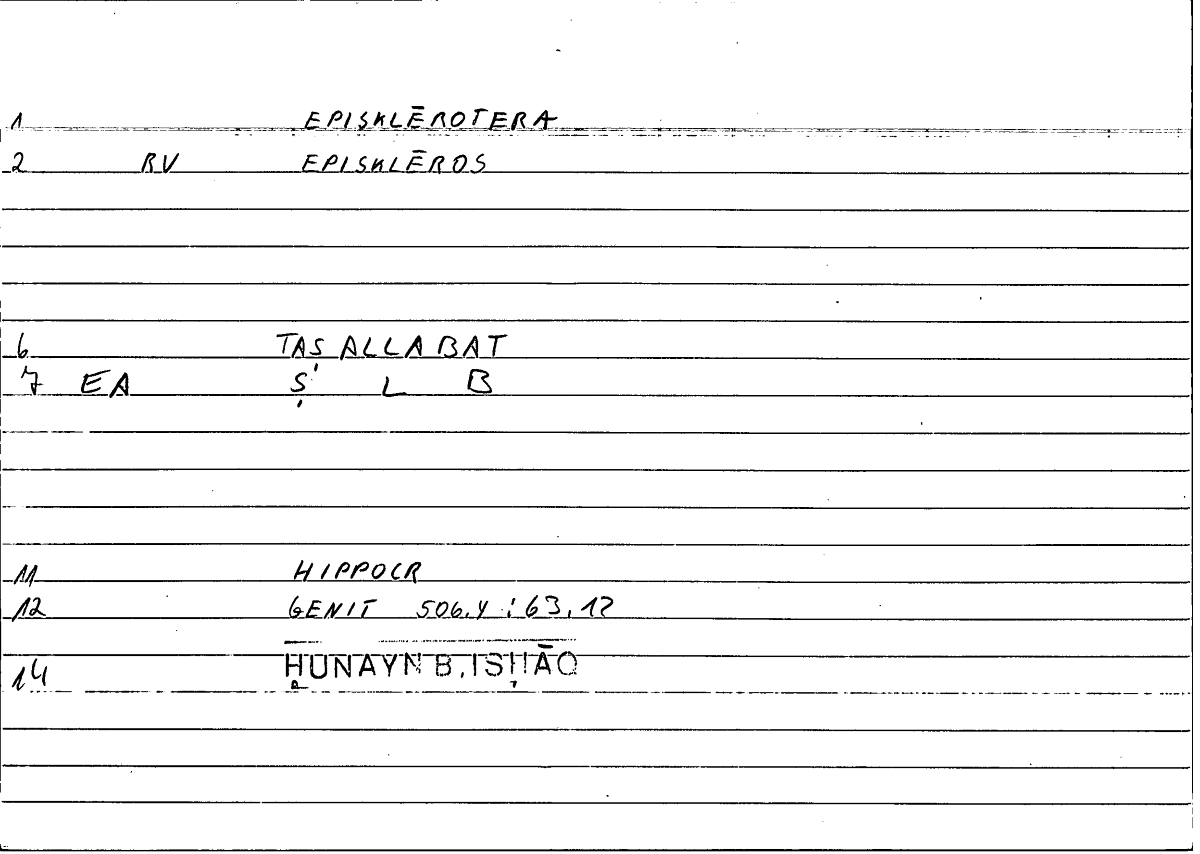 1 EPISKLĒROTERA
2 RV EPISKLĒROS
6 TAṢALLABAT
7 EA Ṣ L B
11 HIPPOCR
12 GENIT 506.4 : 63,12
14 ḤUNAYN B. ISḤĀQ